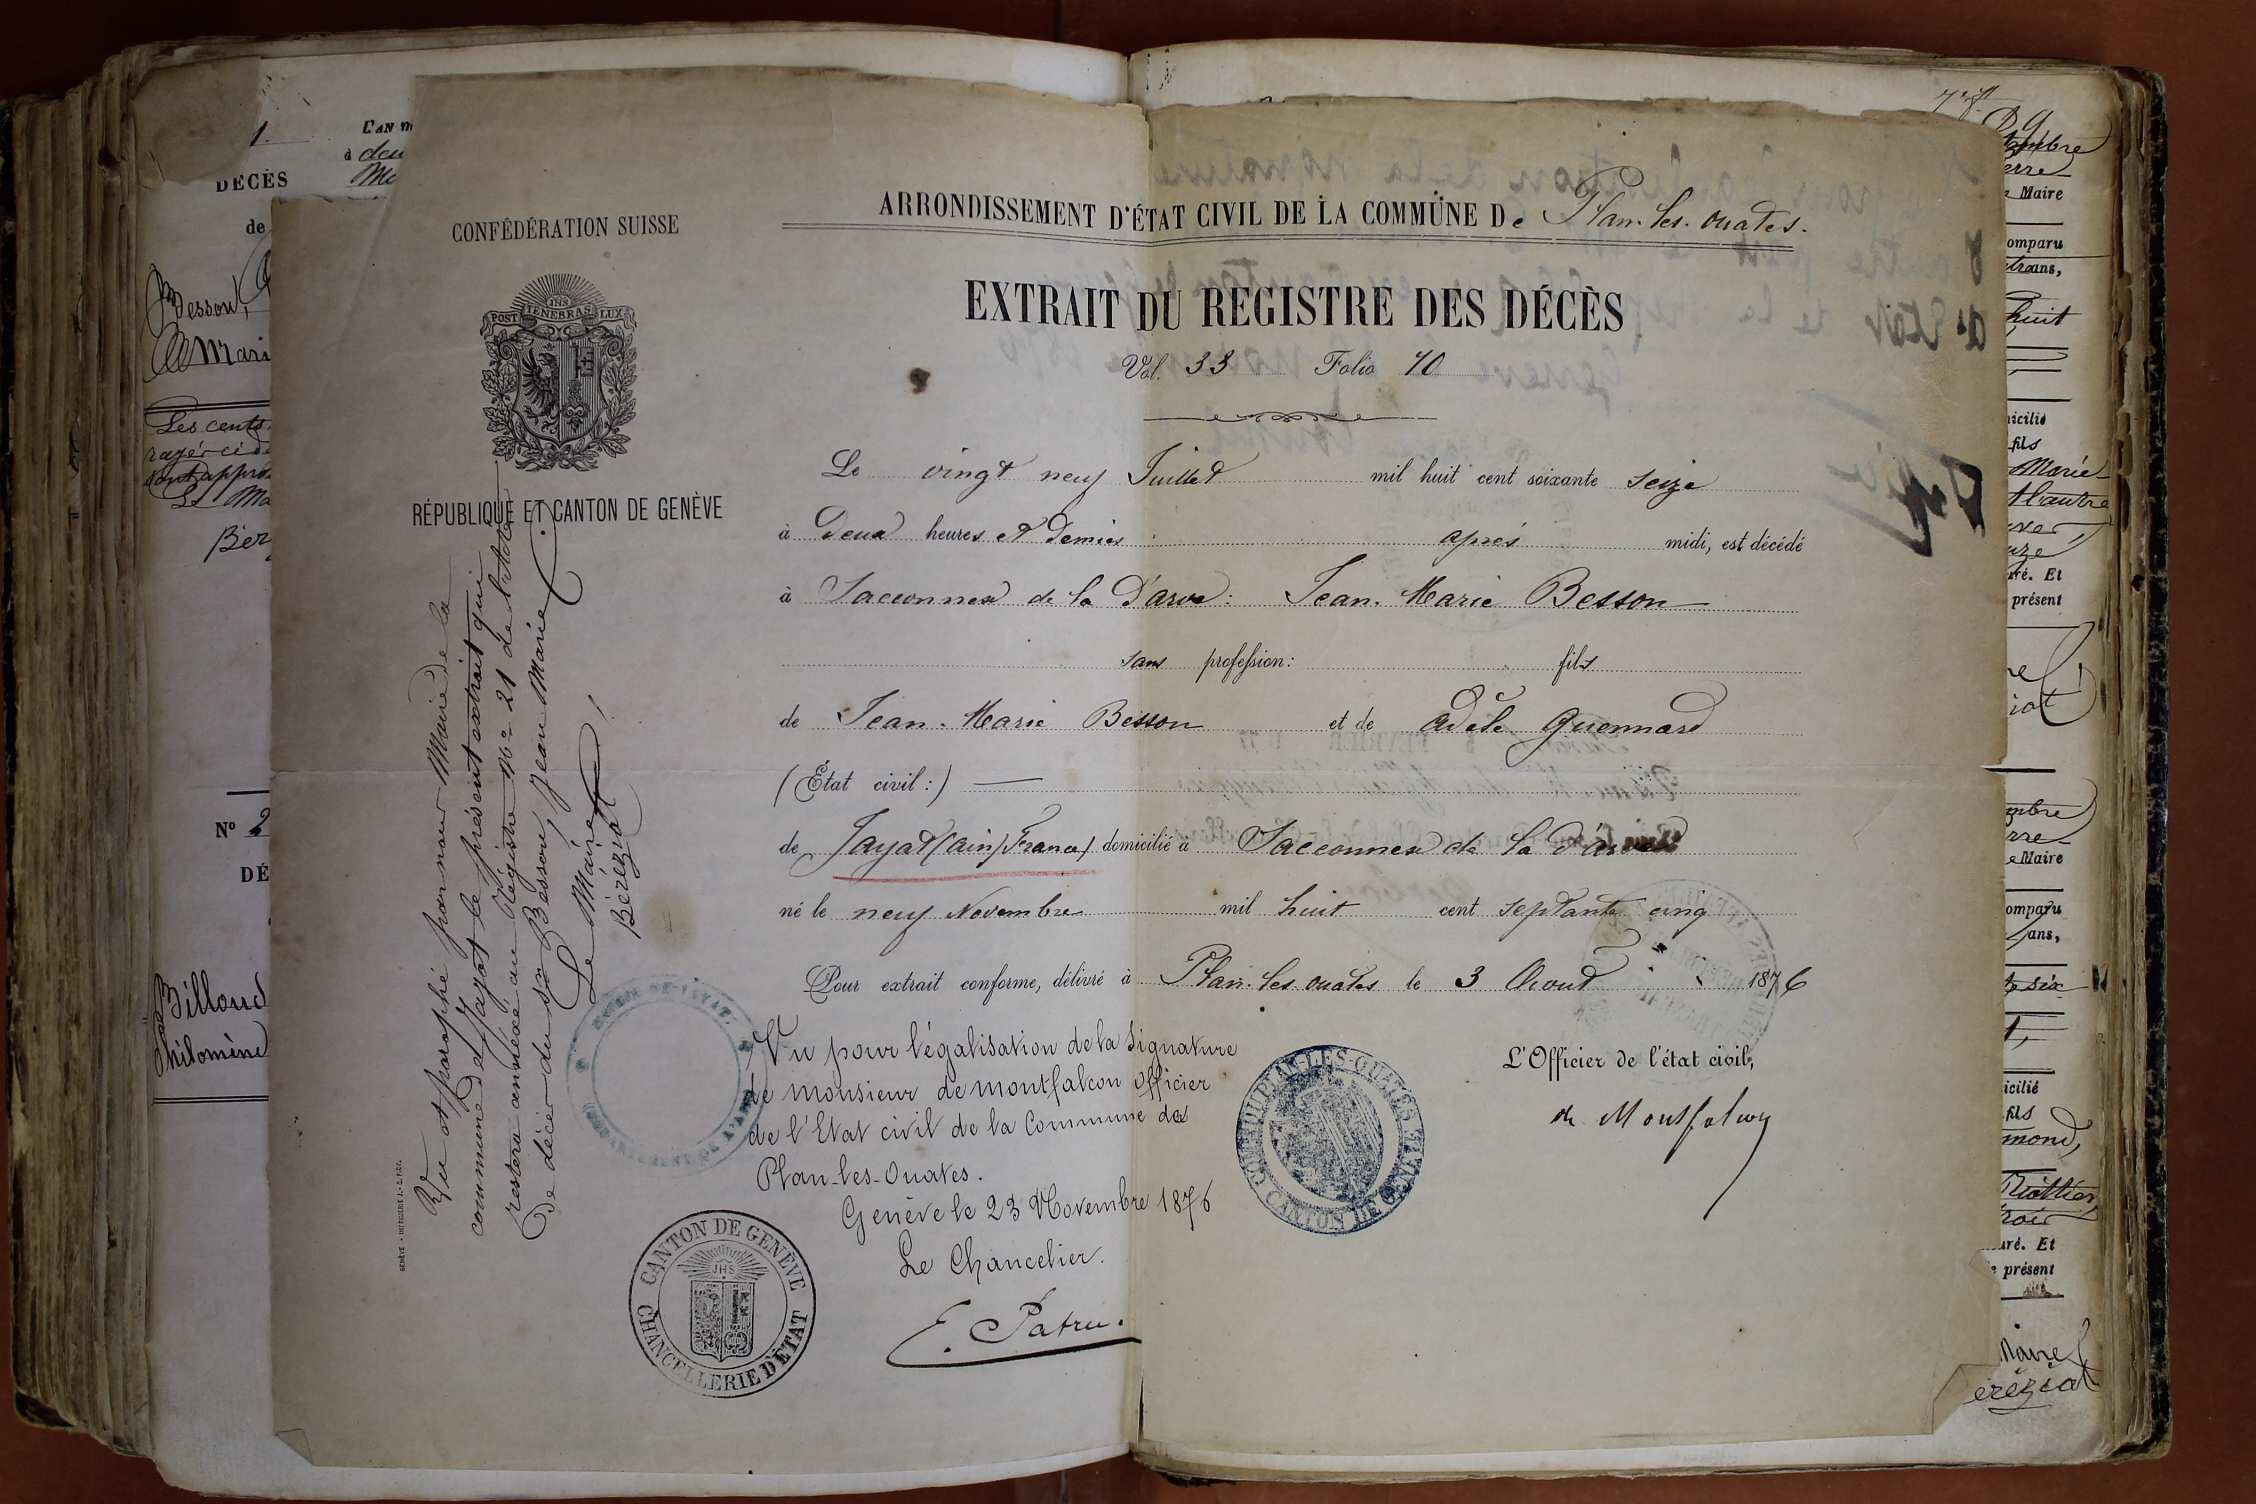 1.
DÉCÈS
de
Besson,
Mari
Les cents
rayés ci de
sont appro
Le Ma
Béré
No 2
DÉ
Billoud
Philomène
L'AN M
à deu
Me
CONFÉDÉRATION SUISSE
POST TENEBRAS LUX
JHS
RÉPUBLIQUE ET CANTON DE GENÈVE
Vu et paraphé par nous Maire de la
commune de Jayat le présent extrait qui
restera annexé au Régistre No 21 de l'acte
de décès du sr Besson, Jean Marie.
Le Maire
Béréziat
ARRONDISSEMENT D'ÉTAT CIVIL DE LA COMMUNE De Plan-les-ouates.
EXTRAIT DU REGISTRE DES DÉCÈS
Vol. 33 Folio 10
Le vingt neuf Juillet mil huit cent soixante seize
à Deux heures et demies après midi, est décédé
à Sacconnex de la D'arve: Jean-Marie Besson
sans profession: fils
de Jean-Marie Besson et de Adèle Guennard
(État civil:)
de Jayat (ain) France) domicilié à Sacconnex de la d'Arve
né le neuf Novembre mil huit cent septante cinq
Pour extrait conforme, délivré à Plan-les ouates le 3 Aout 1876
L'Officier de l'état civil,
de Montfalcon
Vu pour légalisation de la Signature
de Monsieur de Montfalcon Officier
de l'Etat civil de la Commune de
Plan-les-Ouates.
Genève le 23 Novembre 1876
Le Chancelier.
E. Patru.
CANTON DE GENÈVE
JHS
CHANCELLERIE D'ÉTAT
COMMUNE PLAN-LES-OUATES
CANTON DE GENÈVE
tembre
erre
Maire
omparu
ans,
huit
icilié
fils
Marie
l'autre
uré. Et
présent
mbre
rre
Maire
omparu
ans,
six
icilié
fils
mond,
uré. Et
présent
Maire
éréziat